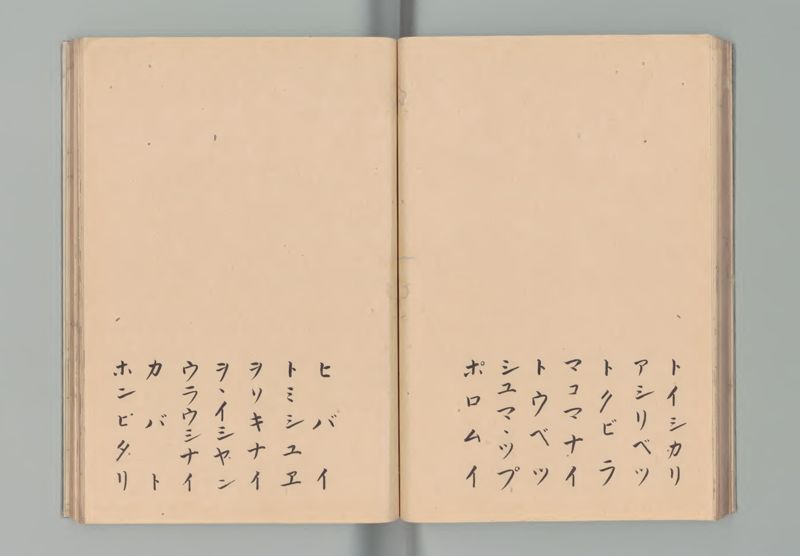 トイシカリ
アシリベツ
トクビラ
マコマナイ
トウベツ
シユマヽツプ
ポロムイ
ヒバイ
トミシユヱ
ヲソキナイ
ヲヽイシヤン
ウラウシナイ
カバト
ホンピダリ